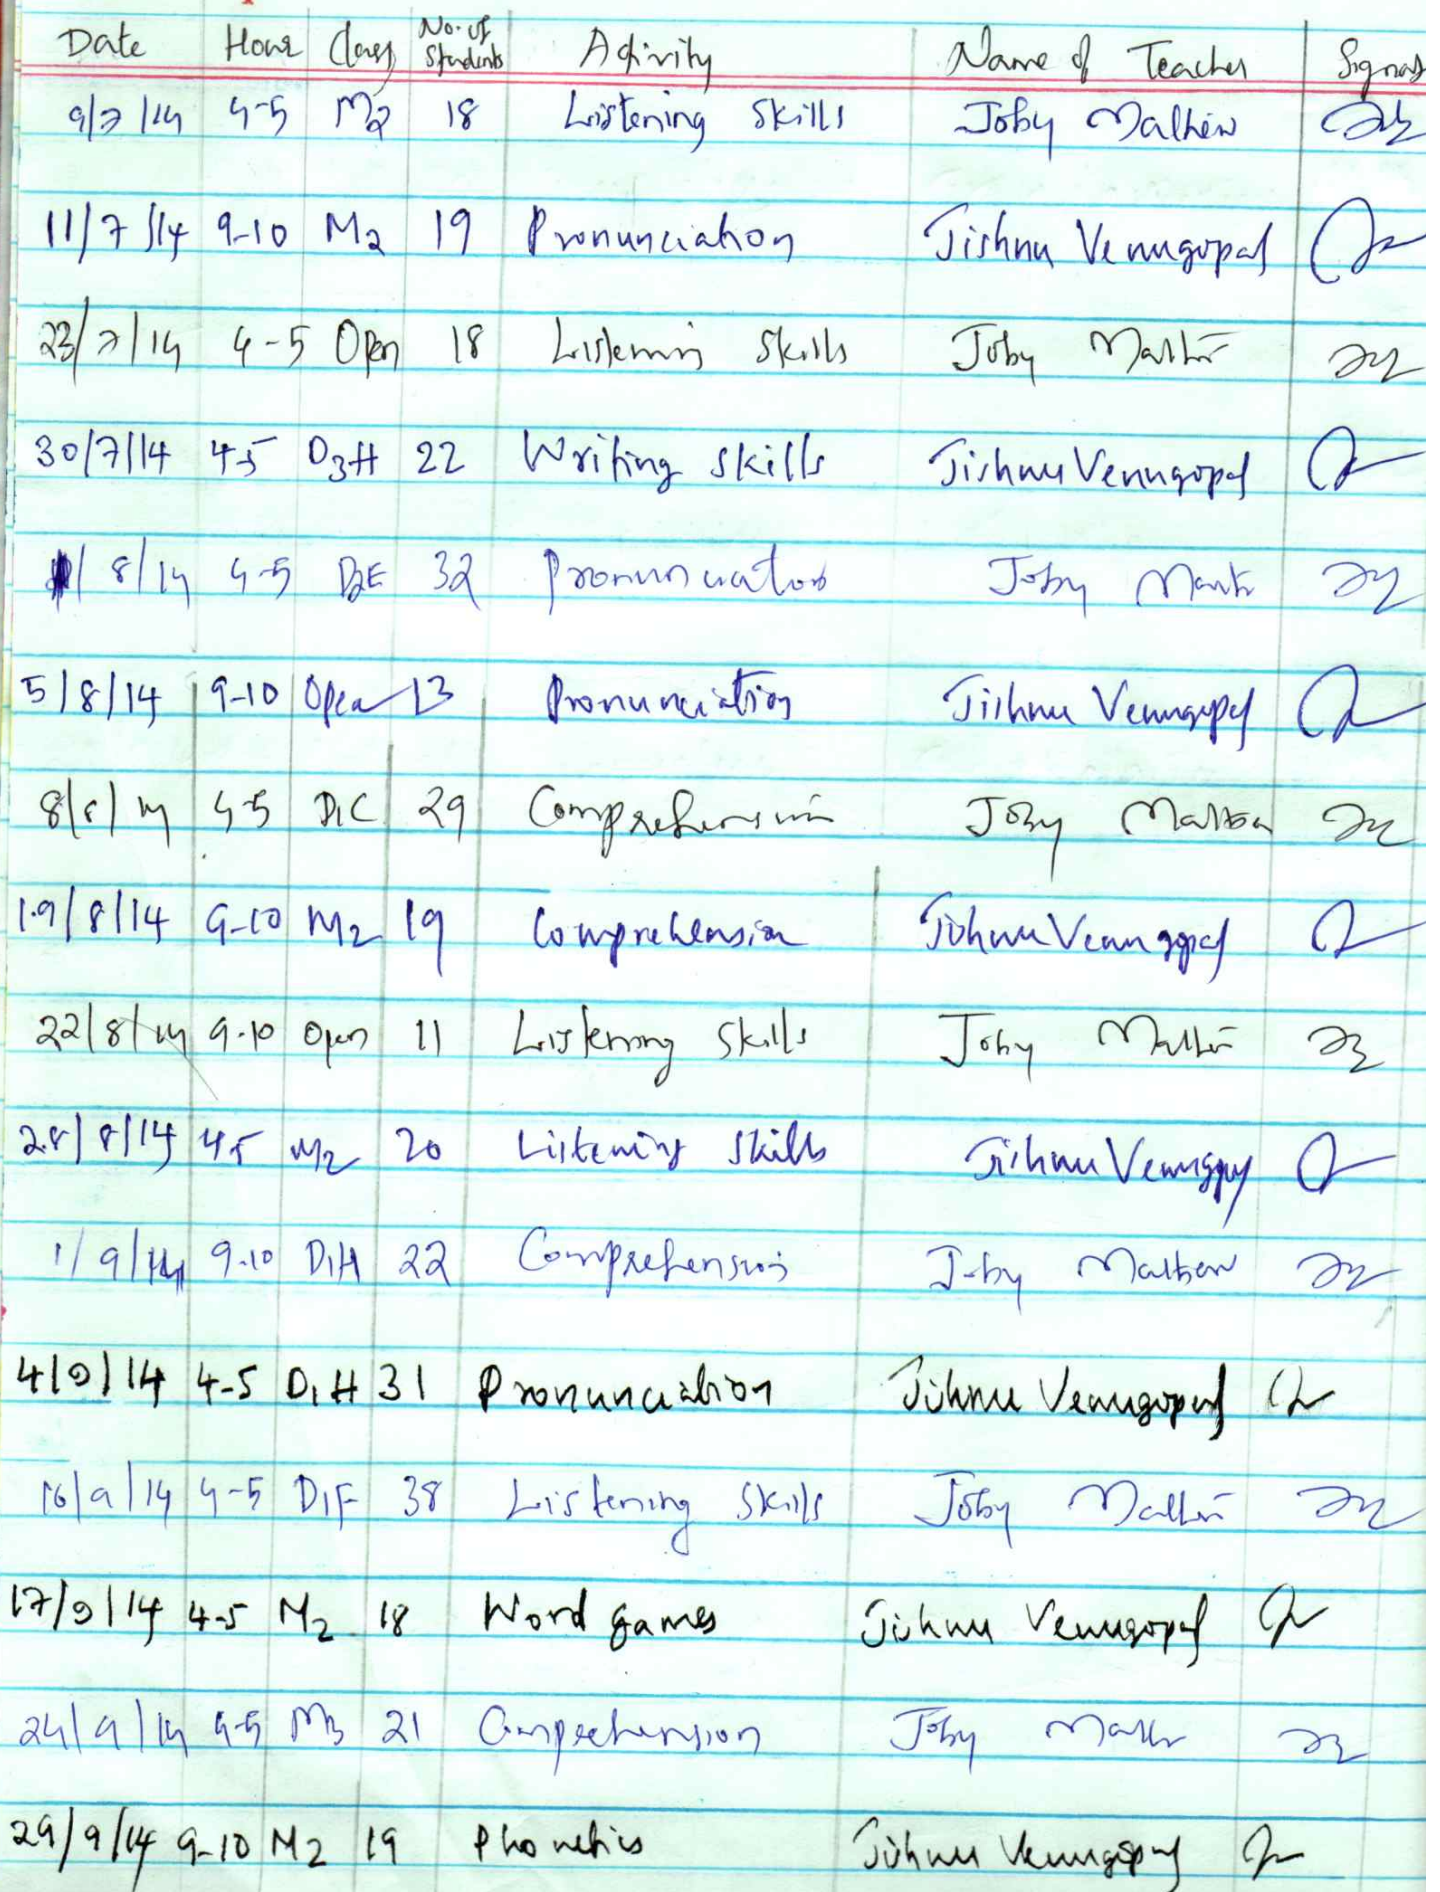 Date Hour Class No. of Students Activity Name of Teacher Signat
9/7/14 4-5 M2 18 Listening Skills Joby Mathew
11/7/14 9-10 M2 19 Pronunciation Jishnu Venugopal
23/7/14 4-5 Open 18 Listening Skills Joby Mathew
30/7/14 4-5 D3H 22 Writing skills Jishnu Venugopal
1/8/14 4-5 D2E 32 Pronunciation Joby Mathew
5/8/14 9-10 Open 13 Pronunciation Jishnu Venugopal
8/8/14 4-5 D1C 29 Comprehension Joby Mathew
19/8/14 9-10 M2 19 Comprehension Jishnu Venugopal
22/8/14 9-10 Open 11 Listening Skills Joby Mathew
28/8/14 4-5 M2 20 Listening Skills Jishnu Venugopal
1/9/14 9-10 D1H 22 Comprehension Joby Mathew
4/9/14 4-5 D1H 31 Pronunciation Jishnu Venugopal
16/9/14 4-5 D1F 38 Listening Skills Joby Mathew
17/9/14 4-5 M2 18 Word games Jishnu Venugopal
24/9/14 4-5 M3 21 Comprehension Joby Mathew
29/9/14 9-10 M2 19 Phonetics Jishnu Venugopal